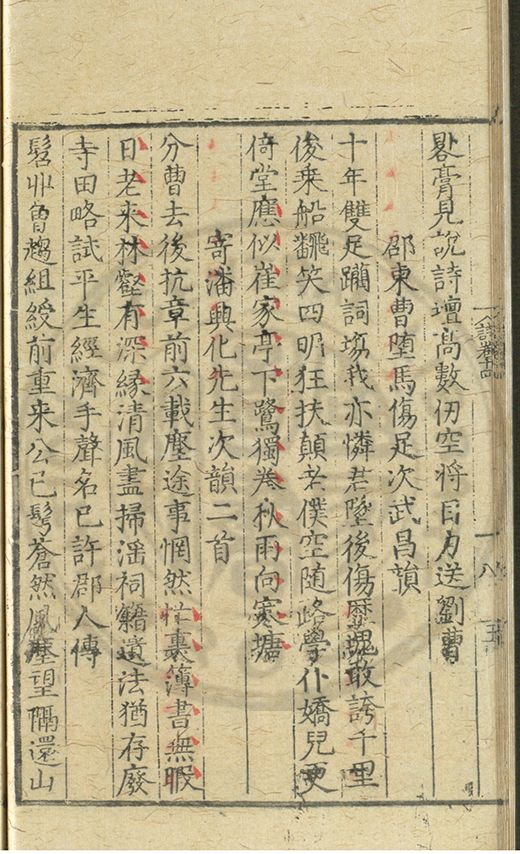 畧膏見說詩壇髙數仞空将目力送劉曹
邵東曹墮馬傷足次武昌韻
十年雙足躙詞塲我亦憐君墜後傷歷塊敢誇千里
俊乗船翻笑四明狂扶顛老僕空随路學仆嬌兒更
倚堂應似崔家亭下鷺獨卷秋雨向寒塘
寄潘興化先生次韻二首
分曹去後抗章前六載塵途事惘然忙裏簿書無暇
日老来林壑有深緣清風盡掃滛祠籍遺法猶存廢
寺田略試平生經濟手聲名已許郡人傳
髫丱曾趨組綬前重来公已鬂蒼然風塵望隔還山